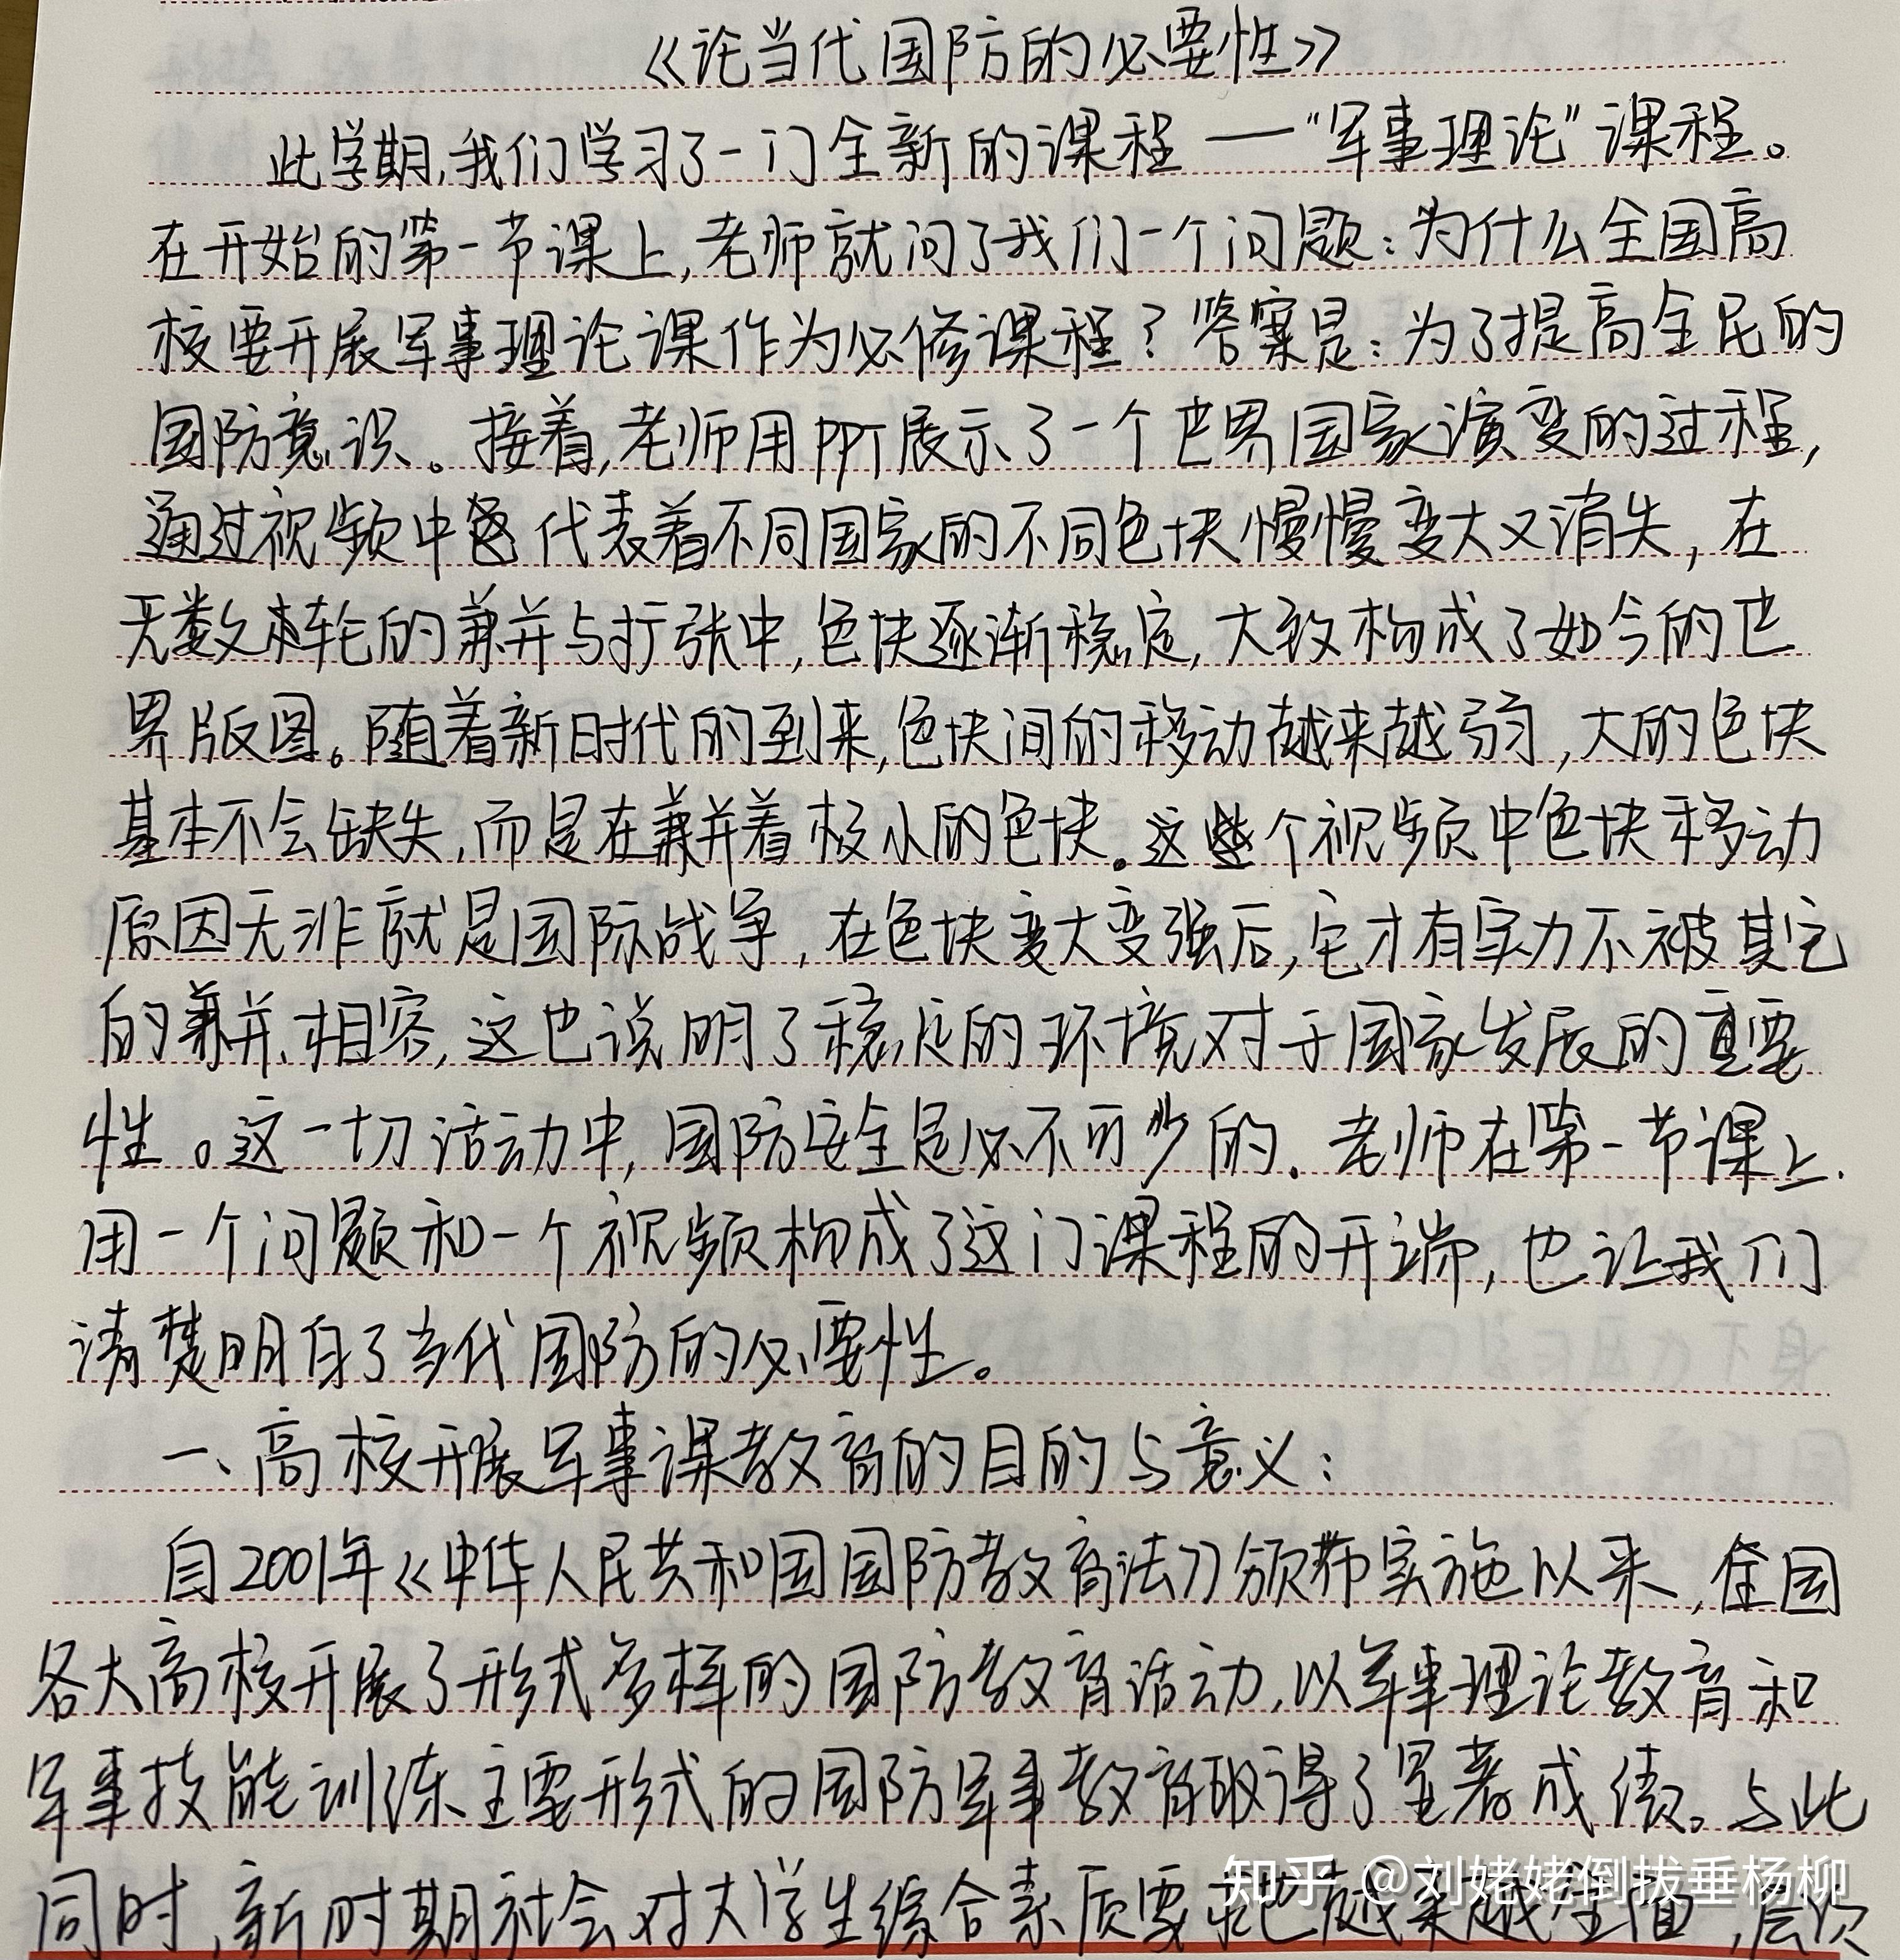 《论当代国防的必要性》
此学期,我们学习了一门全新的课程——“军事理论”课程。
在开始的第一节课上,老师就问了我们一个问题:为什么全国高
校要开展军事理论课作为必修课程?答案是:为了提高全民的
国防意识。接着,老师用PPT展示了一个世界国家演变的过程,
通过视频中 代表着不同国家的不同色块慢慢变大又消失,在
无数轮的兼并与扩张中,色块逐渐稳定,大致构成了如今的世
界版图。随着新时代的到来,色块间的移动越来越弱,大的色块
基本不会缺失,而是在兼并着极小的色块。这些个视频中色块移动
原因无非就是国际战争,在色块变大变强后,它才有实力不被其它
的兼并、相容,这也说明了稳定的环境对于国家发展的重要
性。这一切活动中,国防安全是必不可少的.老师在第一节课上.
用一个问题和一个视频构成了这门课程的开端,也让我们
清楚明白了当代国防的必要性。
一、高校开展军事课教育的目的与意义:
自2001年《中华人民共和国国防教育法》颁布实施以来,全国
各大高校开展了形式多样的国防教育活动,以军事理论教育和
军事技能训练主要形式的国防军事教育取得了显著成绩。与此
同时,新时期社会对大学生综合素质要求也越来越全面,层次
知乎 @刘姥姥倒拔垂杨柳